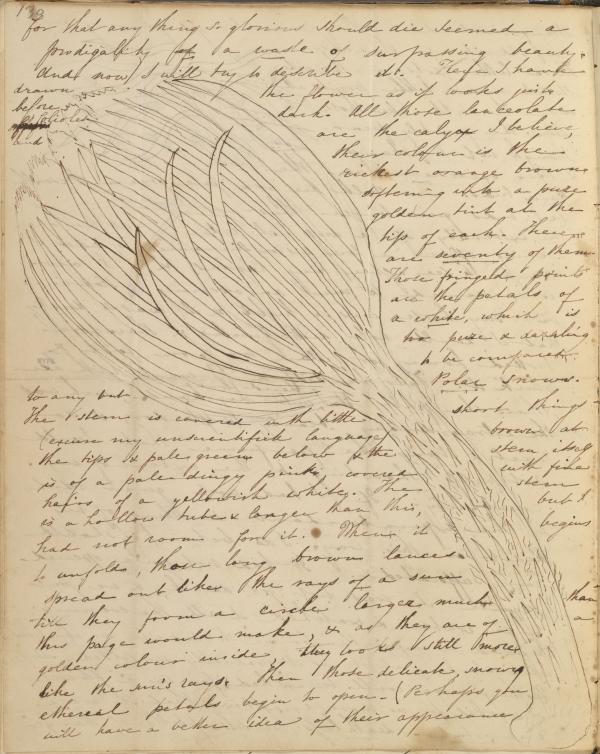 for that any thing so glorious should die seemed a
prodigality of a waste of surpassing beauty.
And now I will try to describe it. There I have
drawn the flower as it looks just
before it unfolds
and dark. All those lanceolate
are the calyx I believe,
their colour is the
richest orange brown
softening into a pure
golden tint at the
tips of each. There
are seventy of them.
Those fringed points
are the petals of
a white, which is
too pure & dazzling
to be compared
to any but Polar snows.
The stem is covered with little shoot things
(excuse my unscientifick language) brown at
the tips & pale green below & the stem itself
is of a pale dingy pink covered with fine
hairs of a yellowish white. The stem
is a hollow tube & longer than this, but I
had not room for it. When it begins
to unfolds, those long brown lances
spread out like the rays of a sun
till they form a circle larger much than
this page would make, & as they are of a
golden colour inside they look still more
like the sun's rays. Then those delicate snowy
ethereal petals begin to open. (Perhaps you
will have a better idea of their appearance